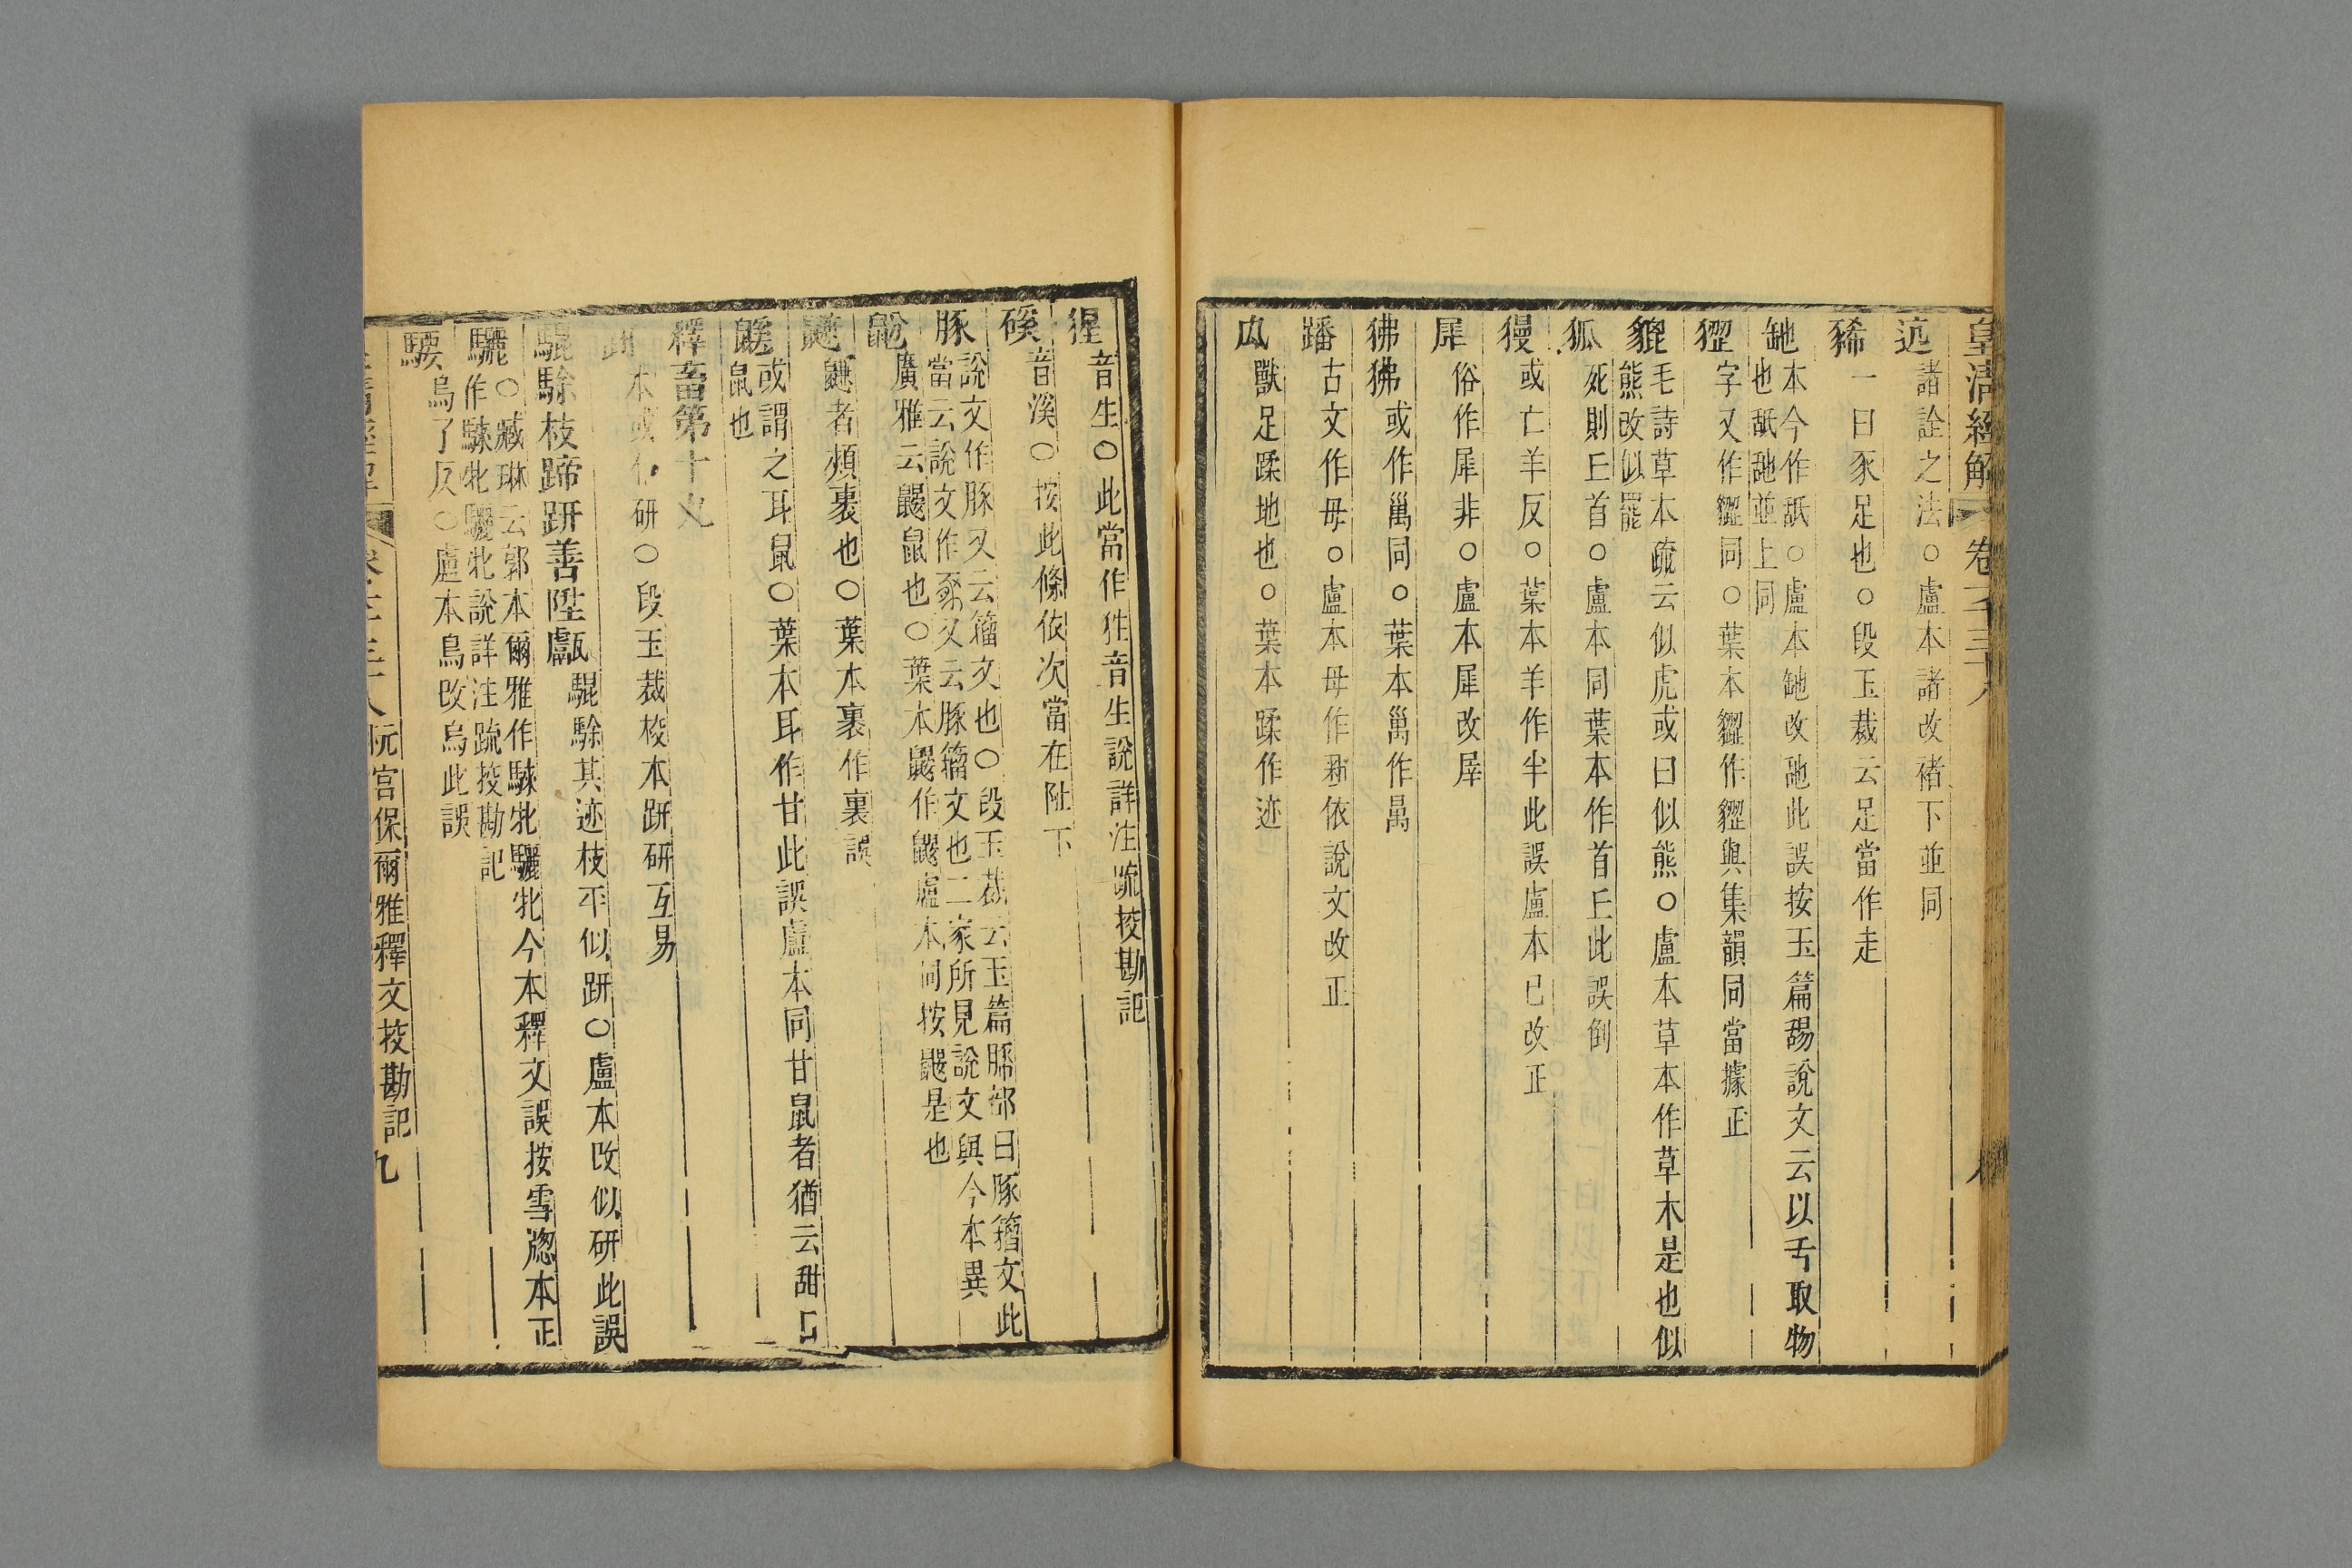 皇清經解 卷千三十八
迒 諸詮之法○盧本諸改褚下並同
豨 一曰豕足也○段玉裁云足當作走
本今作舐○盧本䑛改䑛此誤按玉篇䑛說文云以舌取物
也舐䑛並上同
貏 字又作貏同○葉本貏作貏與集韻同當據正
貔 毛詩草木疏云似虎或曰似熊○盧本草本作草木是也似
熊改似羆
狐 死則丘首○盧本同葉本作首丘此誤倒
獌 或亡羊反○葉本羊作半此誤盧本已改正
犀 俗作犀非○盧本犀改犀
狒狒 或作𥝋同○葉本𥝋作𥝋
蹯 古文作毋○盧本毋作𤔌依說文改正
禸 獸足蹂地也○葉本蹂作迹
猩 音生○此當作狌音生說詳注疏挍勘記
磎 音溪○按此條依次當在阯下
豚 說文作豚又云籀文也○段玉裁云玉篇豚部曰豚籀文此
當云說文作豖又云豚籀文也二家所見說文與今本異
鼢 廣雅云鼴鼠也○葉本鼹作鼴盧本同按鼴是也
鼸 鼸者頰裏也○葉本裏作裹誤
鼷 或謂之耳鼠○葉本耳作甘此誤盧本同甘鼠者猶云甜口
鼠也
釋畜第十九
趼 本或作研○段玉裁挍本趼研互易
騉駼枝蹄趼善陞甗 騉駼其迹枝平似趼○盧本改似研此誤
驪 ○臧琳云郭本爾雅作騋牝驪牝今本釋文誤按雪牕本正
作騋牝驪牝說詳注疏挍勘記
騕 烏了反○盧本鳥改烏此誤
阮宮保爾雅釋文挍勘記 九